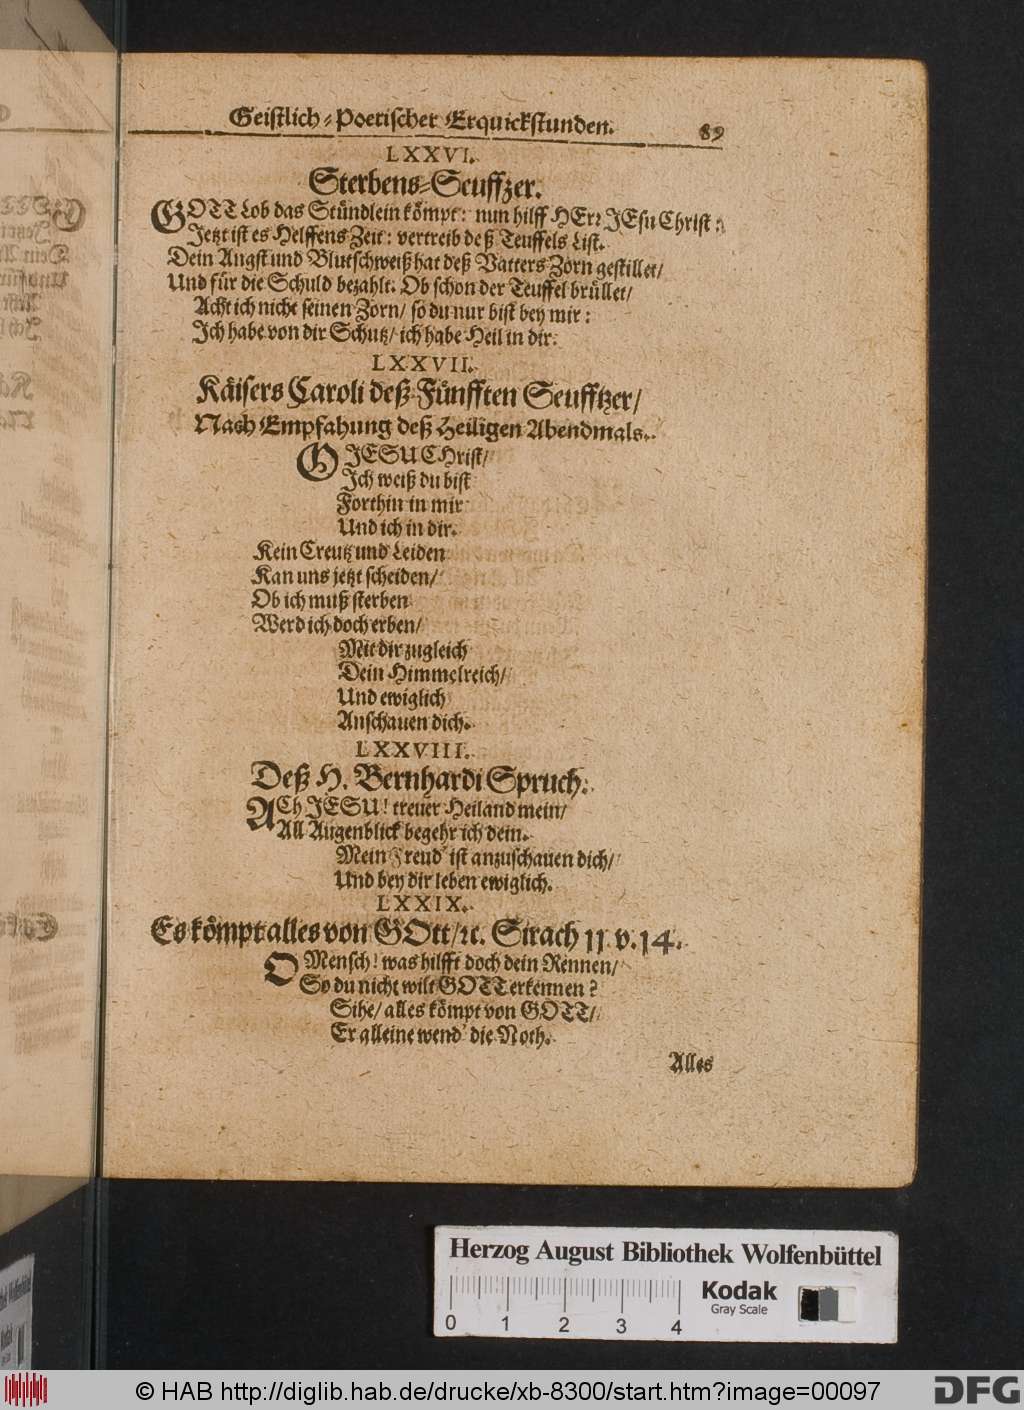 Geistlich-Poetischer Erquickstunden. 89
LXXVI.
Sterbens-Seuffzer.
GOTT Lob das Stündlein kömpt: nun hilff HErr JEsu Christ:
Jetzt ist es Helffens Zeit: vertreib deß Teuffels List.
Dein Angst und Blutschweiß hat deß Vatters Zorn gestillet/
Und für die Schuld bezahlt. Ob schon der Teuffel brüllet/
Acht ich nicht seinen Zorn/ so du nur bist bey mir:
Ich habe von dir Schutz/ ich habe Heil in dir.
LXXVII.
Käisers Caroli deß Fünfften Seufftzer/
Nach Empfahung deß Heiligen Abendmals.
O JESU CHrist/
Ich weiß du bist
Forthin in mir
Und ich in dir.
Kein Creutz und Leiden
Kan uns jetzt scheiden/
Ob ich muß sterben
Werd ich doch erben/
Mit dir zugleich
Dein Himmelreich/
Und ewiglich
Anschauen dich.
LXXVIII.
Deß H. Bernhardi Spruch.
ACh JESU! treuer Heiland mein/
All Augenblick begehr ich dein.
Mein Freud' ist anzuschauen dich/
Und bey dir leben ewiglich.
LXXIX.
Es kömpt alles von GOtt/ ꝛc. Sirach 11. v. 14.
O Mensch! was hilfft doch dein Rennen/
So du nicht wilt GOTT erkennen?
Sihe/ alles kömpt von GOTT/
Er alleine wend' die Noth.
Alles
Herzog August Bibliothek Wolfenbüttel
Kodak
Gray Scale
0 1 2 3 4
© HAB http://diglib.hab.de/drucke/xb-8300/start.htm?image=00097
DFG